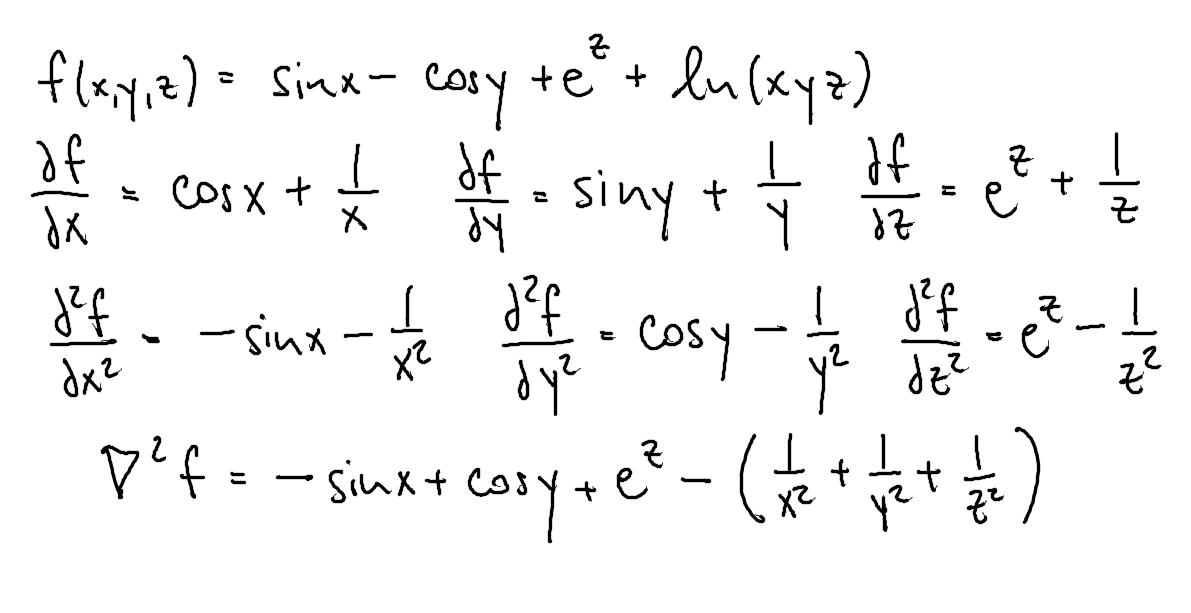 f(x,y,z) = sinx - cosy + e^z + ln(xyz)
∂f/∂x = cosx + 1/x   ∂f/∂y = siny + 1/y   ∂f/∂z = e^z + 1/z
∂²f/∂x² = -sinx - 1/x²   ∂²f/∂y² = cosy - 1/y²   ∂²f/∂z² = e^z - 1/z²
∇²f = -sinx + cosy + e^z - (1/x² + 1/y² + 1/z²)